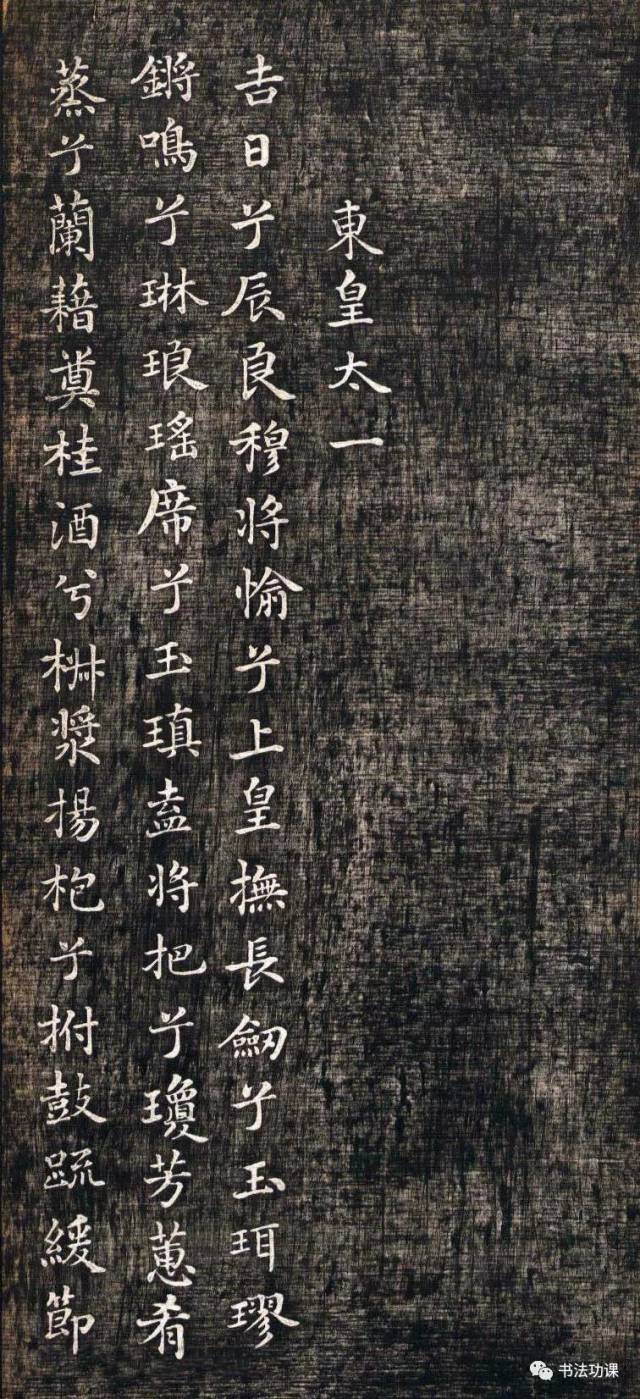 東皇太一
吉日兮辰良穆将愉兮上皇撫長劒兮玉珥璆
鏘鳴兮琳琅瑤席兮玉瑱盍将把兮瓊芳蕙肴
蒸兮蘭藉奠桂酒兮椒漿揚枹兮拊鼓疏緩節
书法功课